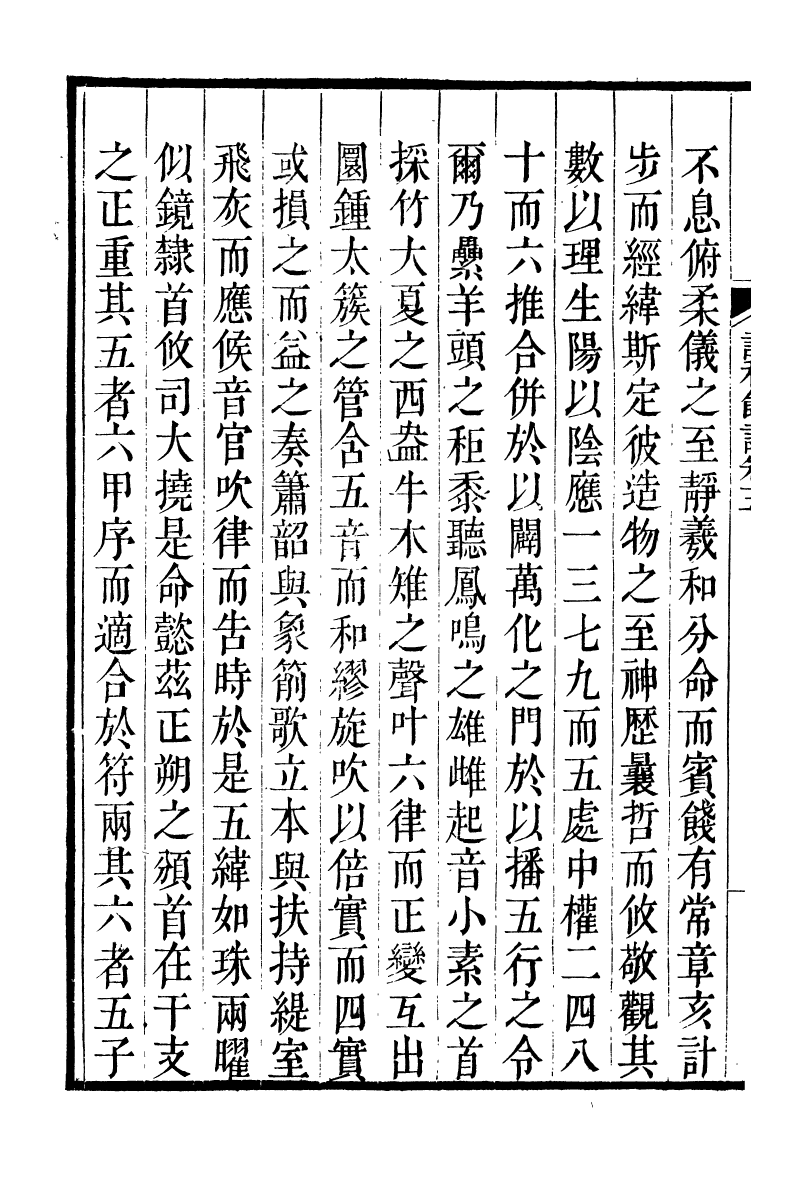 不息俯柔儀之至靜羲和分命而賓餞有常章亥計
步而經緯斯定彼造物之至神歷曩哲而攸敬觀其
數以理生陽以陰應一三七九而五處中權二四八
十而六推合併於以闢萬化之門於以播五行之令
爾乃纍羊頭之秬黍聽鳳鳴之雄雌起音小素之首
採竹大夏之西盎牛木雉之聲叶六律而正變互出
圜鍾太簇之管含五音而和繆旋吹以倍實而四實
或損之而益之奏簫韶與象箾歌立本與扶持緹室
飛灰而應候音官吹律而告時於是五緯如珠兩曜
似鏡隸首攸司大撓是命懿茲正朔之頒首在干支
之正重其五者六甲序而適合於符兩其六者五子